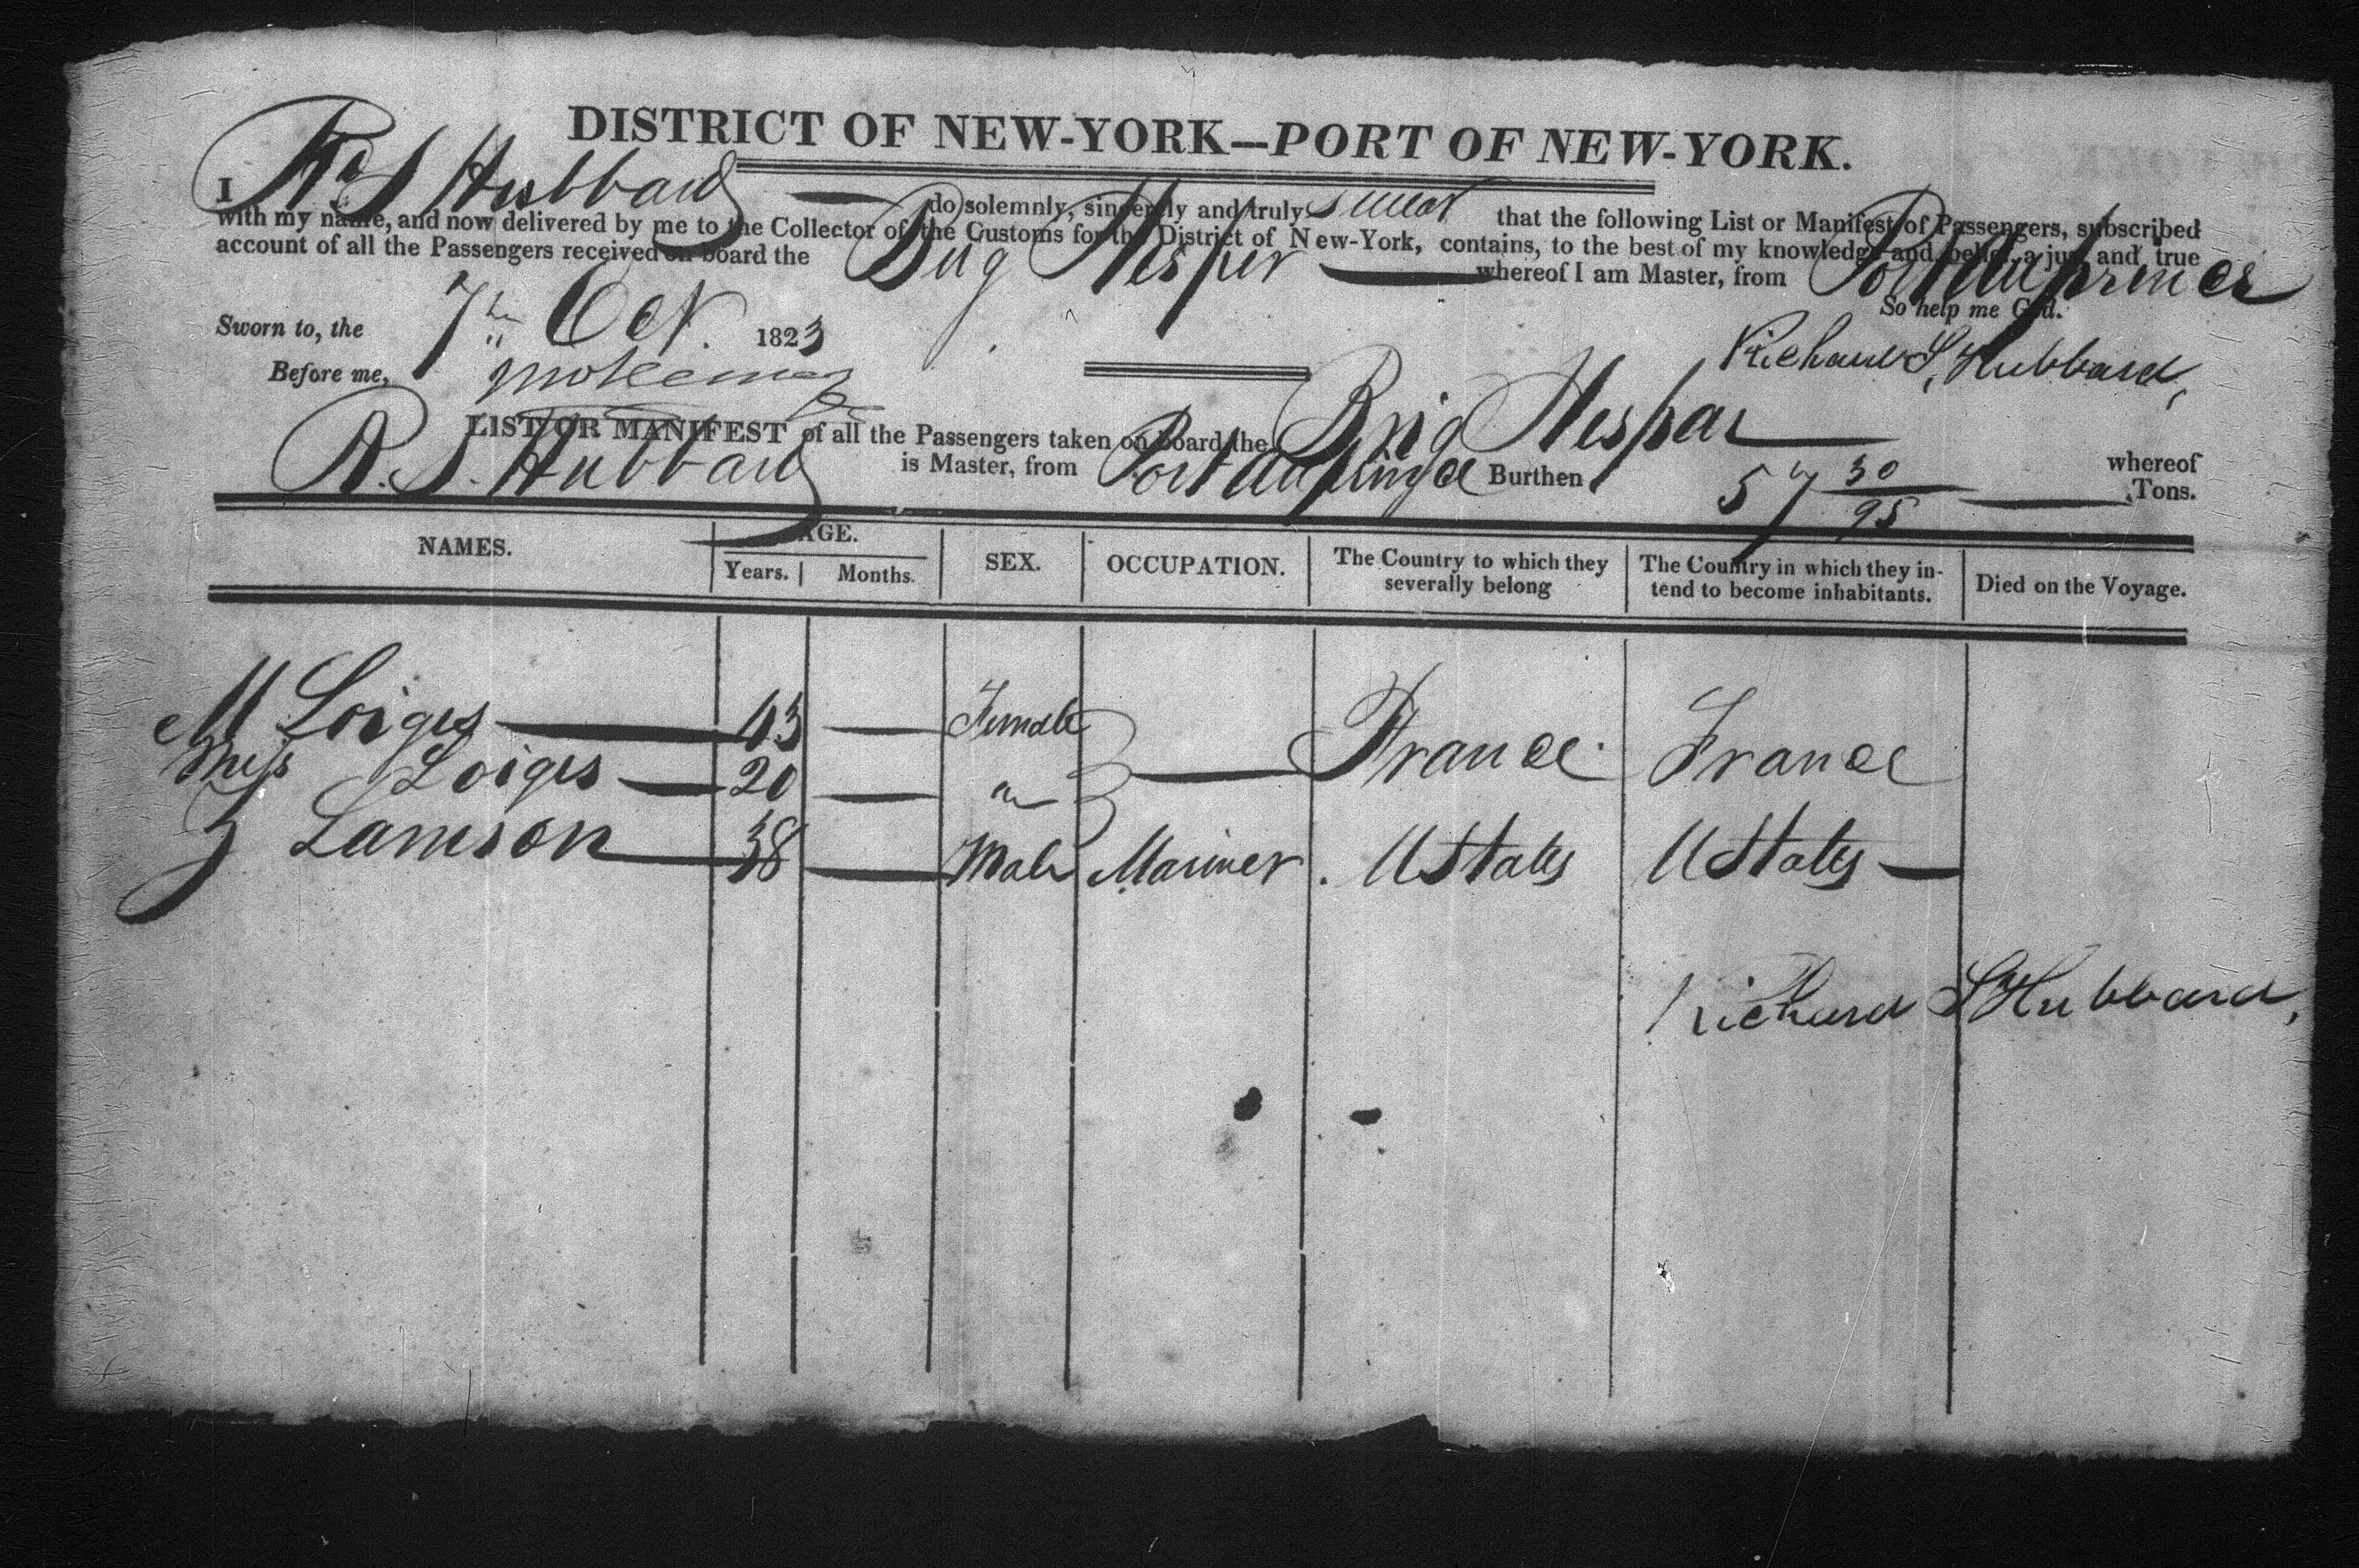 DISTRICT OF NEW-YORK—PORT OF NEW-YORK.
I Rd S Hubbard do solemnly, sincerely and truly swear that the following List or Manifest of Passengers, subscribed
with my name, and now delivered by me to the Collector of the Customs for the District of New-York, contains, to the best of my knowledge and belief, a just and true
account of all the Passengers received on board the Brig Hesper whereof I am Master, from Port au prince
So help me God.
Sworn to, the 7th Oct. 1823
Richard S, Hubbard,
Before me,
LIST OR MANIFEST of all the Passengers taken on board the Brig Hespar whereof
R. S. Hubbard is Master, from Port au prince Burthen 57 30/95 Tons.
NAMES. AGE. SEX. OCCUPATION. The Country to which they severally belong The Country in which they in-tend to become inhabitants. Died on the Voyage.
Years. Months.
M Loiges 43 — Female France France
Miss Loiges 20 — "
Z Lamson 38 — Male Mariner. U States U States —
Richard S Hubbard,